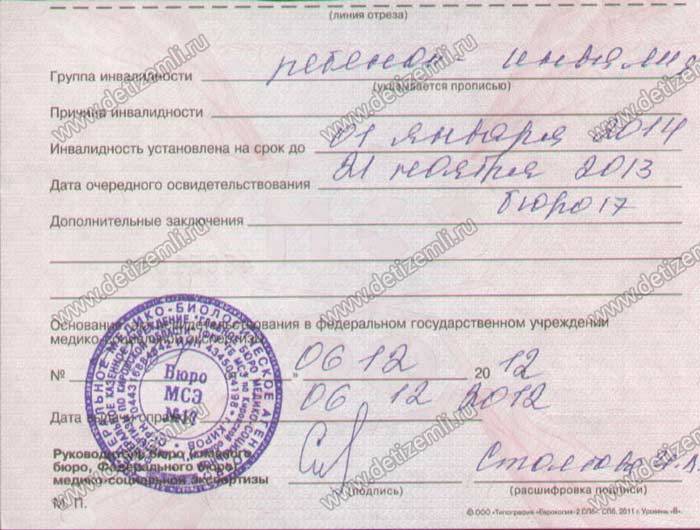 (линия отреза)
Группа инвалидности ребенок-инвалид
(указывается прописью)
Причина инвалидности
Инвалидность установлена на срок до 01 января 2014
Дата очередного освидетельствования 21 ноября 2013
бюро 17
Дополнительные заключения
Основание: акт освидетельствования в федеральном государственном учреждении
медико-социальной экспертизы
№ 06 12 20 12
Дата выдачи справки 06 12 2012
Бюро
МСЭ
№17
Руководитель бюро (главного
бюро, Федерального бюро)
медико-социальной экспертизы
(подпись)
(расшифровка подписи)
М. П.
© ООО «Типография «Еврокопия-2 СПб». СПб, 2011 г. Уровень «В».
www.detizemli.ru